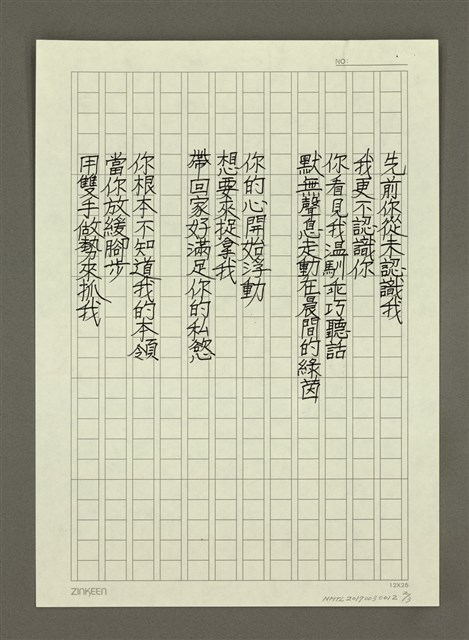 NO:
先前你從未認識我
我更不認識你
你看見我溫馴乖巧聽話
默無聲息走動在晨間的綠茵
你的心開始浮動
想要來捉拿我
帶回家好滿足你的私慾
你根本不知道我的本領
當你放緩腳步
用雙手做勢來抓我
ZINKEEN
12X25